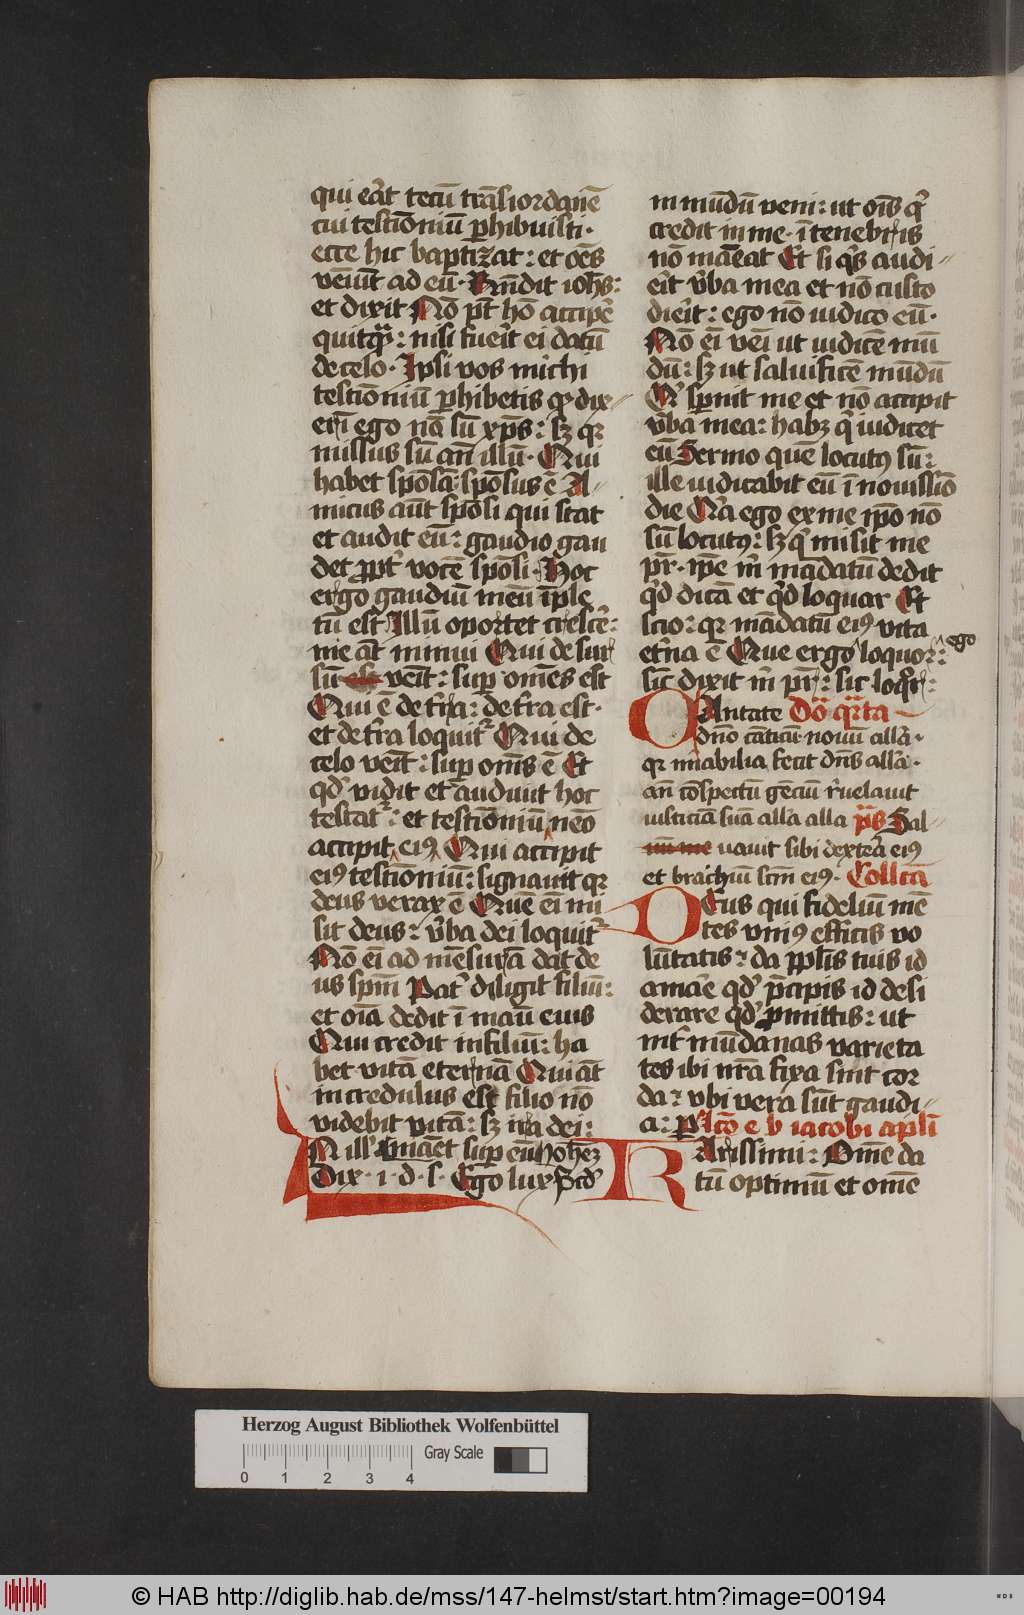 qui eāt tecū trāsiordanē
cui testīoniū phibuisti·
ecce hic baptizat: et oēs
veniūt ad eū· Rn̄dit ioh̄s:
et dixit Nō pt̄ hō accipe͛
quitqͣ: nisi fueīt ei datū
de celo· Ipsi vos michi
testioniū phibetis qͥ dix
eri ego nō sū xp̄s: sꝫ qꝛ
missus sū an̄ illū· Qui
habet spōsā: spōsus ē A
micus aūt spōsi qui stat
et audit eū: gaudio gau
det ꝓpt͛ vocē spōsi· Hoc
ergo gaudiū meū īple
tū est Illū oportet cresce͛:
me āt minui Qui desur
sū venīt: sup omēs est
Qui ē de t͛ra: de t͛ra est·
et de t͛ra loquit͛ Qui de
celo venīt: sup oms ē Et
qd͛ vidit et audiuit hoc
testat͛: et testioniū nēo
accipit eiꝯ Qui accipit
eiꝯ testioniū: signauit qꝛ
deus verax ē Quē eī mi
sit deus: v͛ba dei loquit͛
Nō eī ad mēsurā dat de
us spm̄ Pat͛ diligit filiū:
et oīa dedit ī manu eius
Qui credit in filiū: ha
bet vitā eternā Qui āt
incredulus est filio nō
videbit vitā: sꝫ ira dei:
manet sup eū
Dix· i· d· s· Ego lux
in mūdū veni: ut oīs qͥ
credit in me· ī tenebris
nō maneat Et si qͥs audi
eīt v͛ba mea et nō custo
dieīt: ego nō iudico eū·
Nō eī veī ut iudicē mū
dū: sꝫ ut saluificē mūdū
Qͥ spnit me et nō accipit
v͛ba mea: habꝫ qͥ iudicet
eū Sermo quē locutꝯ sū:
ille iudicabit eū ī nouissīo
die Qͥa ego ex me ip̄o nō
sū locutꝯ: sꝫ qͥ misit me
pr̄· ip̄e m̄ mādatū dedit
qͥd dicā et qͥd loquar Et
scio: qꝛ mādatū eiꝯ vita
et͛na ē Que ergo loquor: ego
sic̄ dixit m̄ pr̄: sic loqͦr:
CAntate Dō qͣrta
dn̄o cāticū nouū all͛a·
qꝛ mirabilia fecit dn̄s all͛a·
an̄ cōspectū gēciū r͛uelauit
iusticiā suā all͛a all͛a p̄s Sal
uauit sibi dextera eiꝯ
et brachiū scm̄ eiꝯ· Collcā
DEus qui fideliū mē
tes vniꝯ efficis vo
lūtatis: da pplīs tuis id
amare qd͛ p̄cipis id desi
derare qd͛ pmittis: ut
int͛ mūdanas varieta
tes ibi nr̄a fixa sint cor
da: vbi vera sūt gaudi
a: p Lcō e b iacobi apli
KArissimi: Omē da
tū optimū et omē
Herzog August Bibliothek Wolfenbüttel
Gray Scale
0 1 2 3 4
© HAB http://diglib.hab.de/mss/147-helmst/start.htm?image=00194